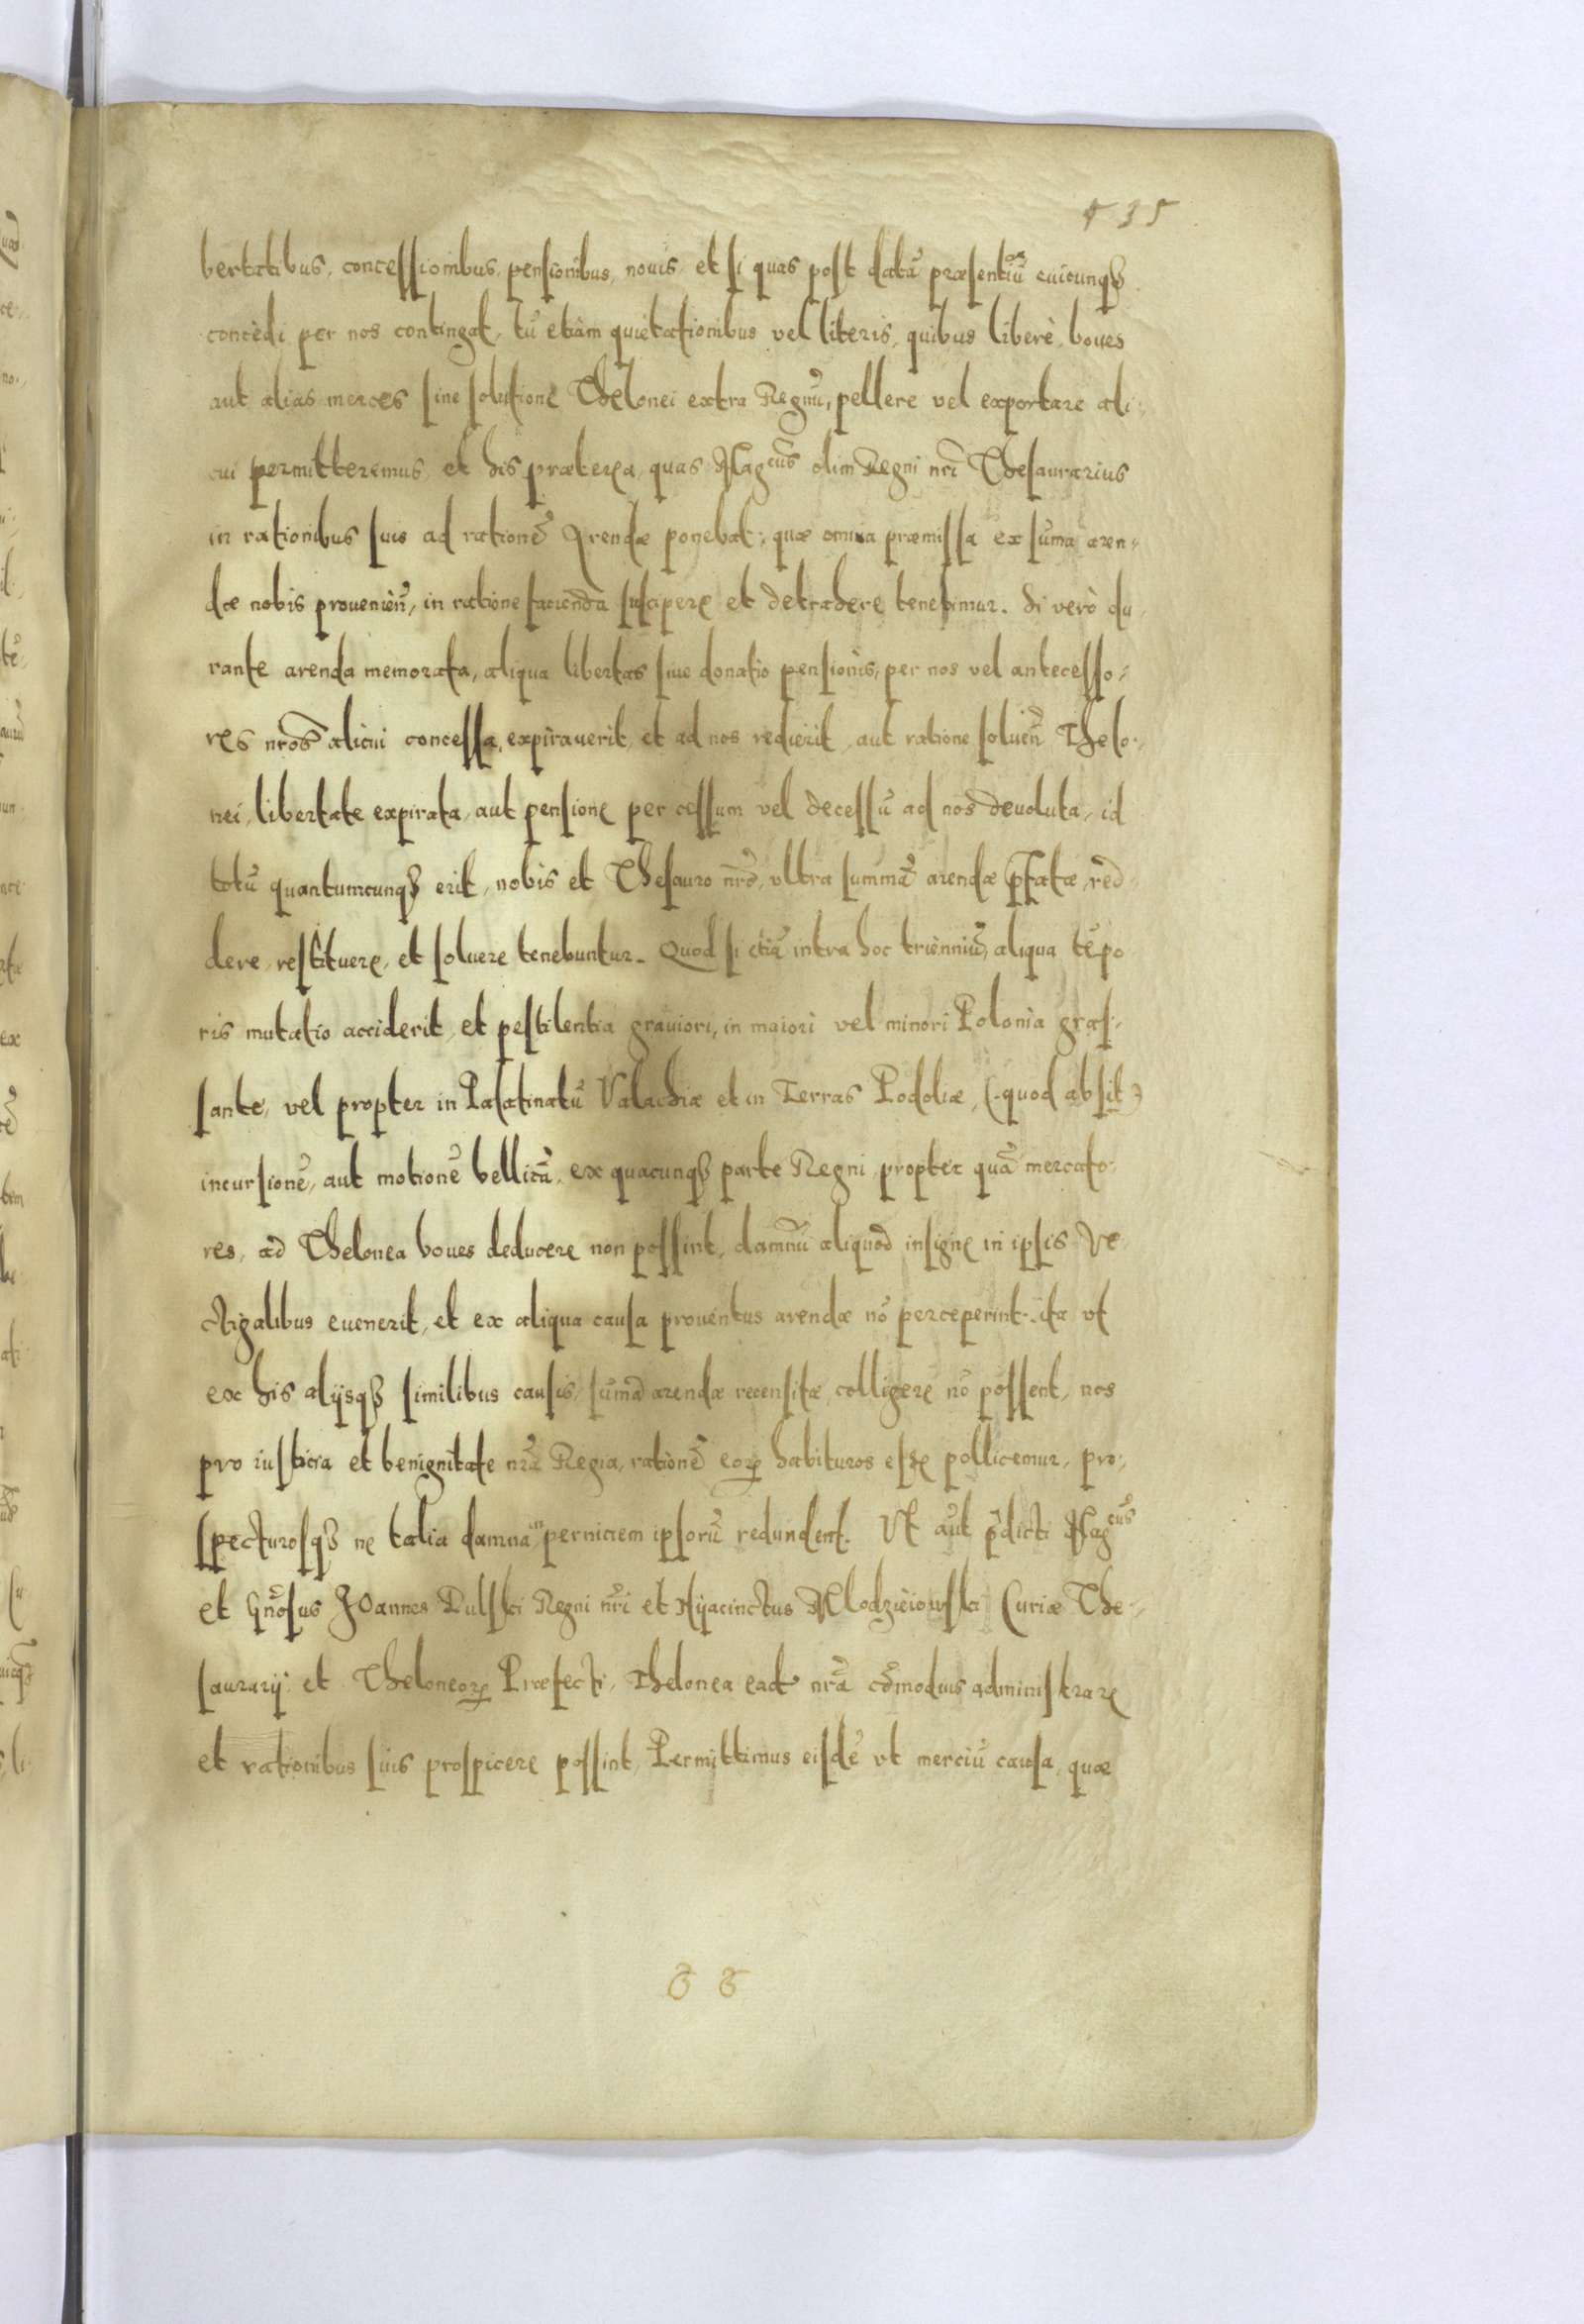 135
bertatibus, concessionibus, pensionibus, nouis, et si quas post datã præsentiũ cuicunqȝ
concèdi per nos contingat, tũ etiàm quietationibus vel literis, quibus liberè boues
aut alias merces sine solutione Thelonei extra Regnũ, pellere vel exportare ali-
cui permitteremus et his præterea, quas Magcus olim Regni nri Thesaurarius
in rationibus suis ad rationẽ Arendæ ponebat; quæ omnia præmissa ex suma aren-
dæ nobis prouenieñ, in ratione facienda suscipere et detrahere tenebimur. Si verò du-
rante arenda memorata, aliqua libertas siue donatio pensionis, per nos vel antecesso-
res nros alicui concessa, expirauerit, et ad nos redierit, aut ratione solueñ Thelo-
nei, libertate expirata, aut pensione per cessum vel decessũ ad nos deuoluta, id
totũ quantumcunqȝ erit, nobis et Thesauro nro, vltra summã arendæ p̃fatæ, red-
dere, restituere, et soluere tenebuntur. Quod si etiã intra hoc trienniũ, aliqua tẽpo
ris mutatio acciderit, et pestilentia grauiori, in maiori vel minori Polonia gras-
sante, vel propter in Palatinatũ Valachiæ et in Terras Podoliæ, (quod absit)
incursionẽ, aut motionẽ bellicã, ex quacunqȝ parte Regni propter quã mercato-
res, ad Thelonea boues deducere non possint, damnũ aliquod insigne in ipsis Ve-
ctigalibus euenerit, et ex aliqua causa prouentus arendæ nõ perceperint, ita vt
ex his alijsqȝ similibus causis, sumã arendæ recensitæ, colligere nõ possent, nos
pro iusticia et benignitate nrã Regia, rationẽ eorꝝ habituros esse pollicemur, pro-
specturosqȝ ne talia damna in perniciem ipsorũ redundent. Vt aũt p̃dicti Magcus
et Gnosus Joannes Dulski Regni nri et Hyacinctus Mlodzieiowski Curiæ The-
saurarij et Theloneorꝝ Præfecti, Thelonea ead nrã cõmodius administrare
et rationibus suis prospicere possint, Permittimus eisdẽ vt merciũ causa, quæ